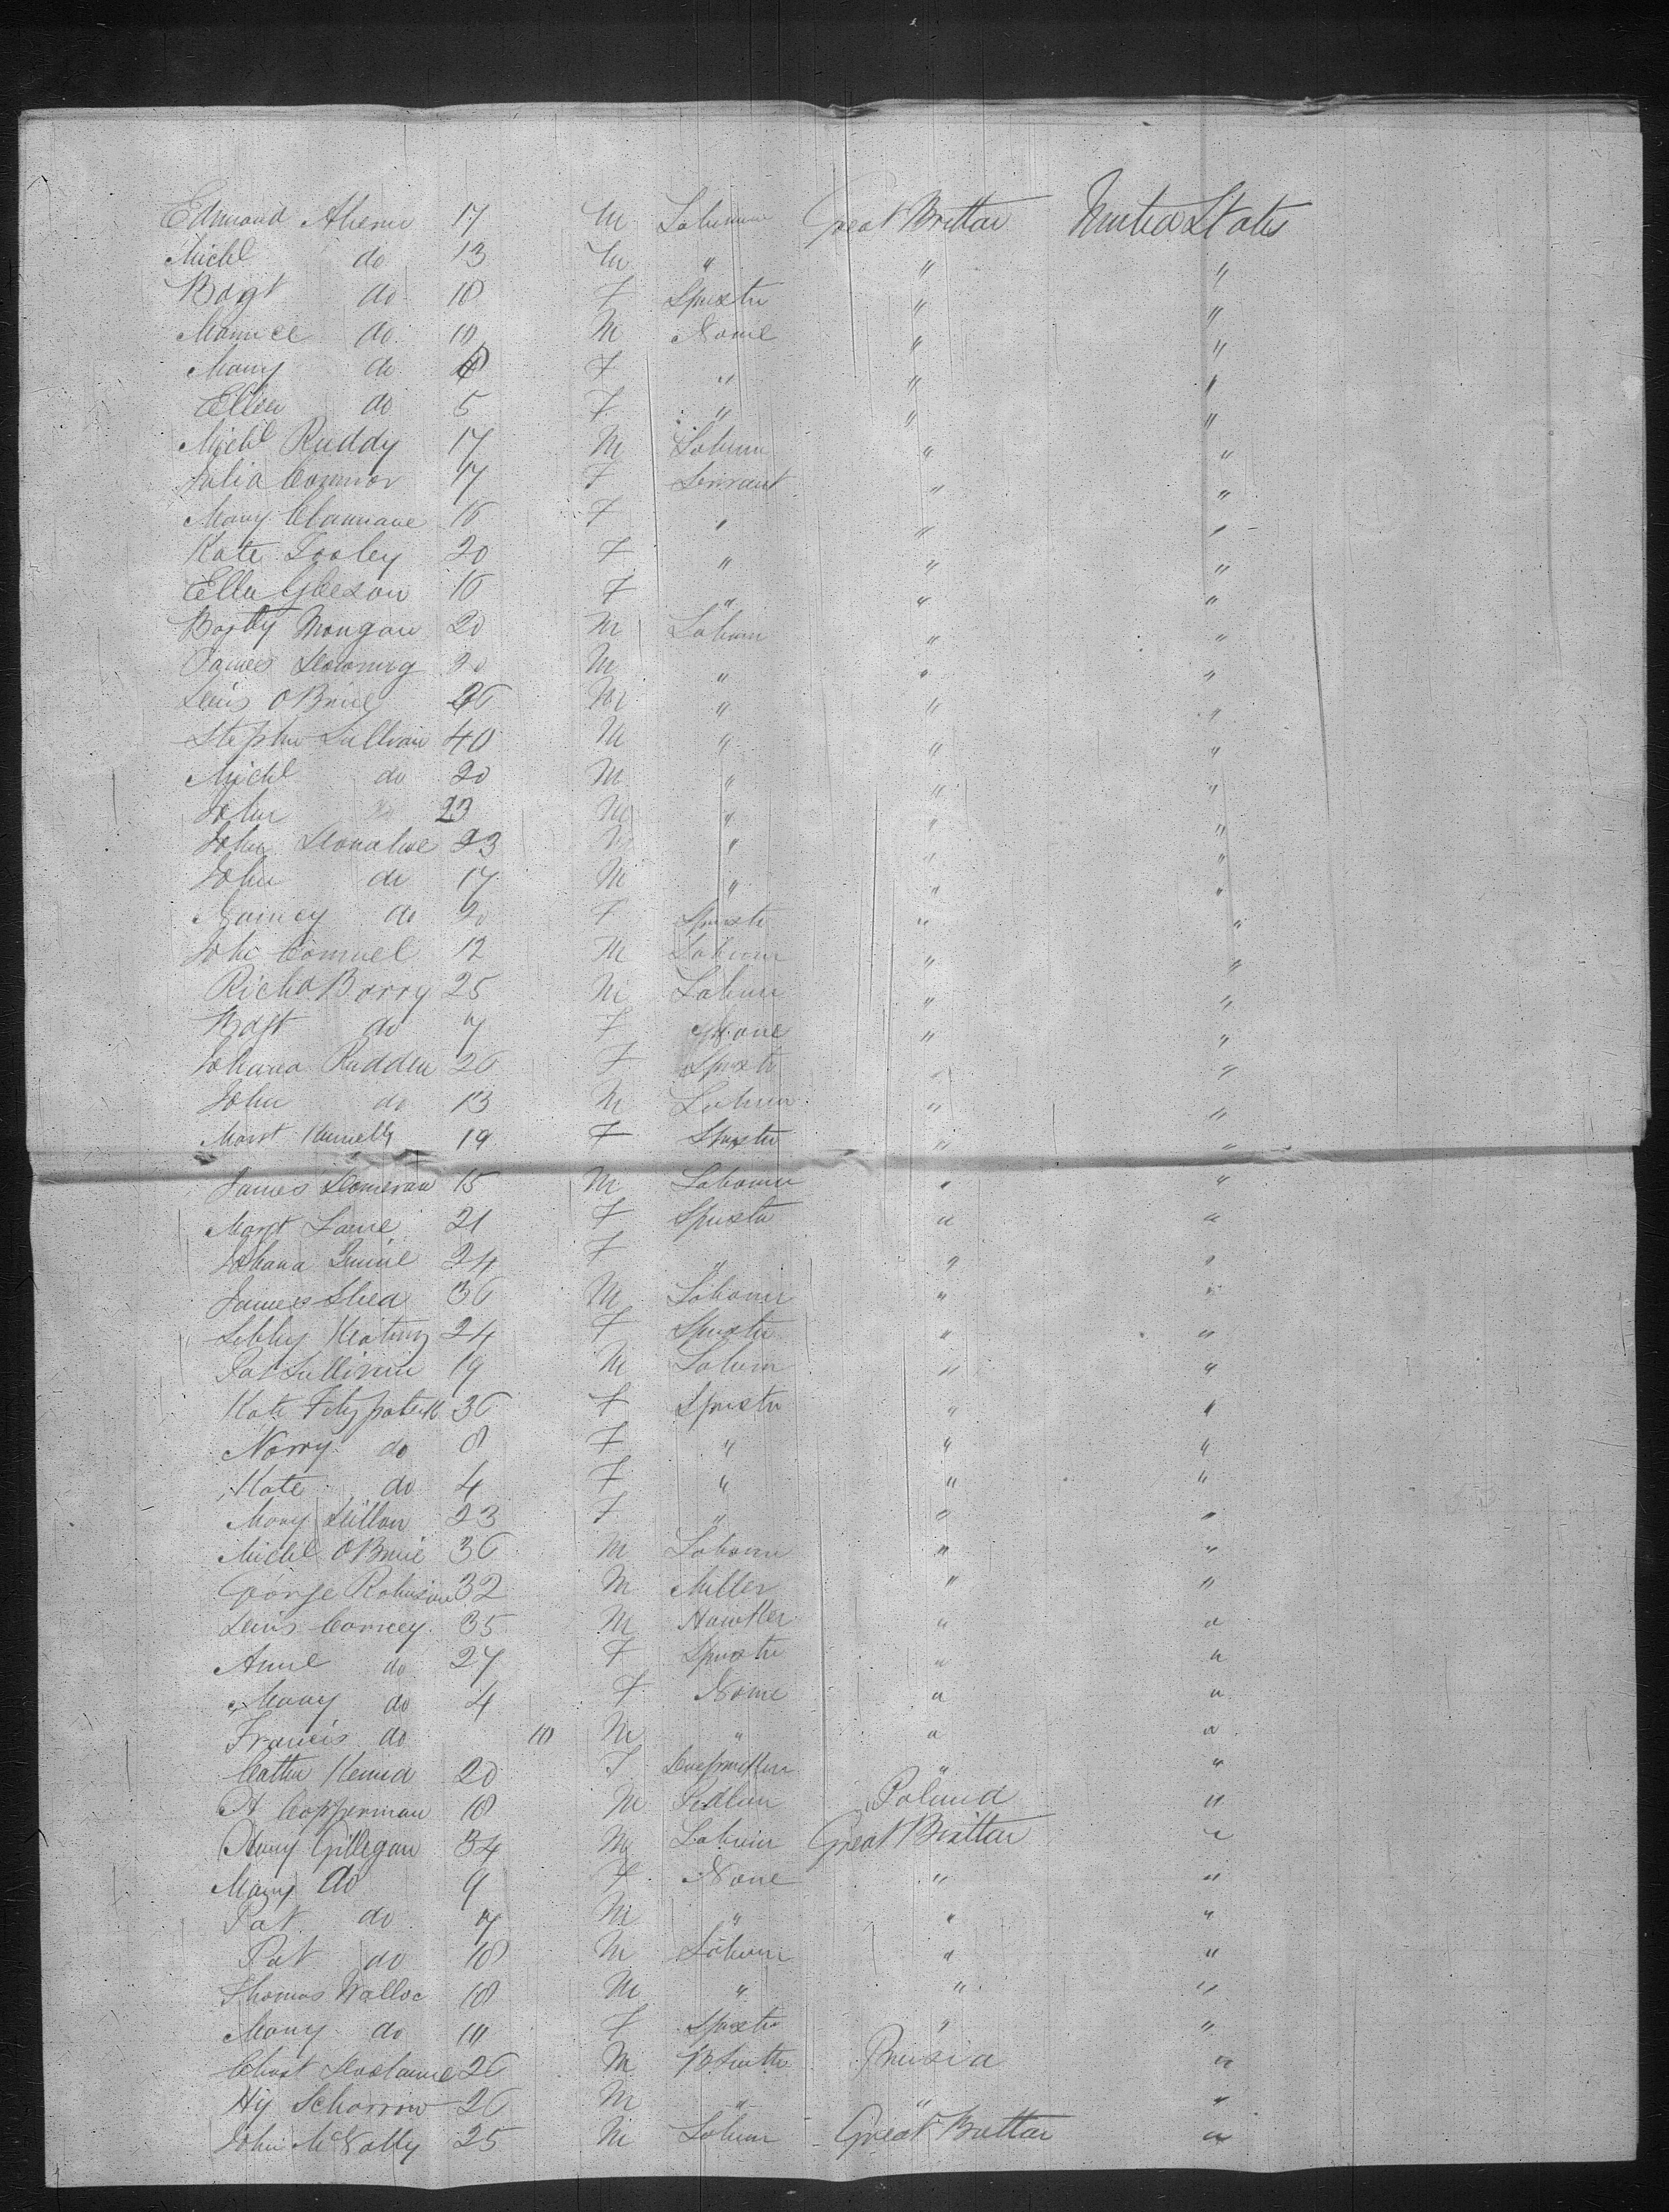 Edmond Ahern 17 M Laborer Great Brittan United States
Michl do 13 M " " "
Bdgt do 18 F Spinster " "
Maurice do 10 M None " "
Mary do 8 F " " "
Ellen do 5 F " " "
Michl Ruddy 17 M Laborer " "
Julia Connor 17 F Servant " "
Mary 16 F " " "
Kate Tooley 20 F " " "
Ellen Gleeson 16 F " " "
Mongan 20 M Laborer " "
James Downing 20 M " " "
O Brine 26 M " " "
Stephen Sullivan 40 M " " "
Michl do 20 M " " "
John 23 M " " "
John Donahue 23 M " " "
John do 17 M " " "
do 20 F Spinster " "
John 12 M Laborer " "
Richd Barry 25 M Laborer " "
Bdgt do 7 F None " "
Johana Rudden 26 F Spinster " "
John do 13 M Laborer " "
Margt 19 F Spinster " "
James 15 M Laborer " "
Margt Lane 21 F Spinster " "
Johana 24 F " " "
James Shea 36 M Laborer " "
Keating 24 F Spinster " "
Pat Sullivan 19 M Laborer " "
Kate Fitzpatrick 36 F Spinster " "
Norry do 8 F " " "
Kate do 4 F " " "
Mary Dillon 23 F " " "
Michl O Brine 36 M Laborer " "
George Robinson 32 M Miller " "
35 M Hawker " "
Anne do 27 F Spinster " "
Mary do 4 F None " "
Francis do 10 M " " "
20 F " "
Copperman 18 M Poland "
Gillegan 34 M Laborer Great Brittan "
Mary do 9 F None " "
Pat do 7 M " " "
Pat do 18 M Laborer " "
Thomas 18 M " " "
Mary do F Spinster " "
26 M Prusia "
Hy 26 M " " "
John McNally 25 M Laborer Great Brittan "